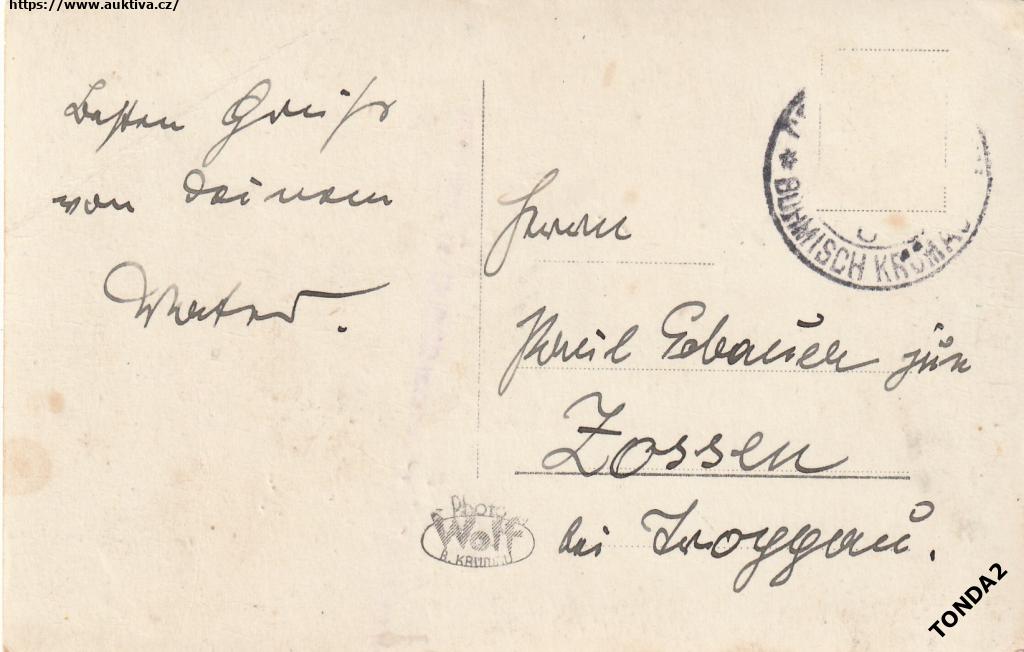 https://www.auktiva.cz/
Besten Gruß
von Deinem
Vater.
BÖHMISCH KRUMAU
Herrn
Paul Gebauer jun
Zossen
bei Troppau.
Photo
Wolf
B. KRUMAU
TONDA2